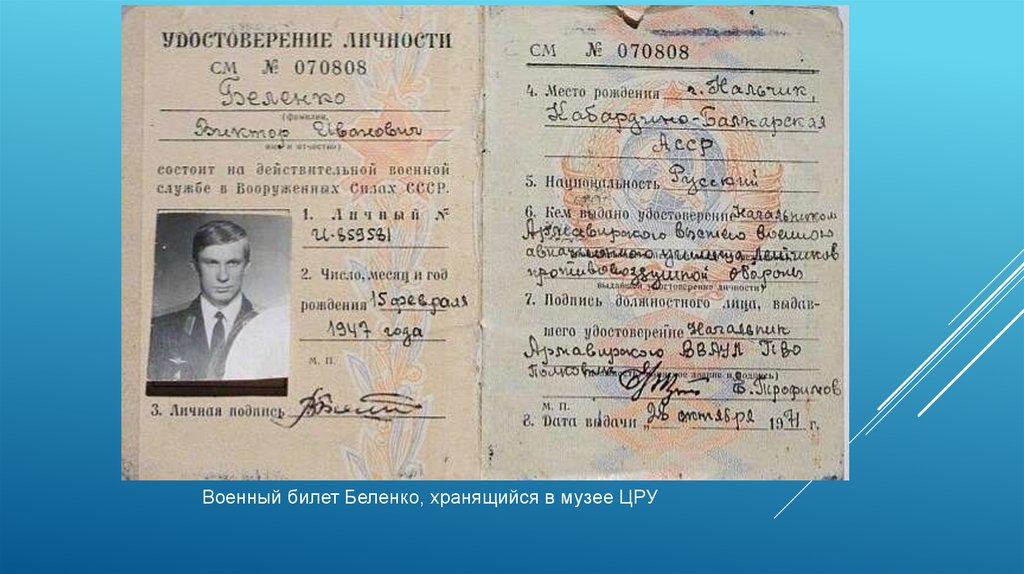 УДОСТОВЕРЕНИЕ ЛИЧНОСТИ
СМ № 070808
Беленко
(фамилия,
Виктор Иванович
имя и отчество)
состоит на действительной военной
службе в Вооруженных Силах СССР.
1. Личный №
И-859581
2. Число, месяц и год
рождения 15 февраля
1947 года
м. п.
3. Личная подпись
СМ № 070808
4. Место рождения г. Нальчик,
Кабардино-Балкарская
АССР
5. Национальность Русский
6. Кем выдано удостоверение Начальником
Армавирского высшего военного
авиационного училища летчиков
противовоздушной обороны
выдавшей удостоверение личности)
7. Подпись должностного лица, выдав-
шего удостоверение Начальник
Армавирского ВВАУЛ ПВО
Полковник
Б. Трофимов
м. п.
8. Дата выдачи „26 октября 1971 г.
Военный билет Беленко, хранящийся в музее ЦРУ